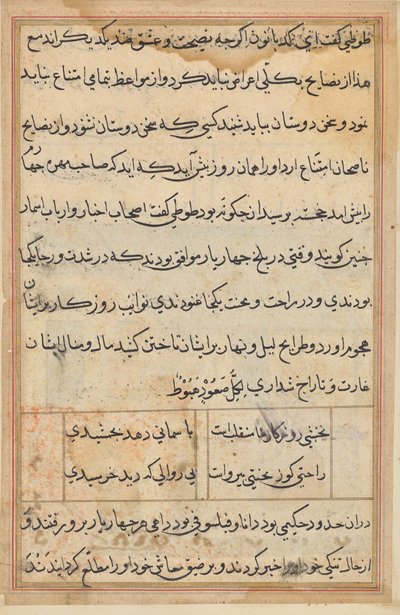 طوطی گفت ای کدبانون اگرچه نصیحت و عشق ضد یکدیگراند مع
هذا از نصایح بکلی اعراض نباید کرد و از مواعظ تمامی امتناع نباید
نمود و سخن دوستان بباید شنید کسی که سخن دوستان نشنود و از نصایح
ناصحان امتناع ارد اورا همان روز پیش آید که ان صاحب مهره چهارم
را پیش امد خجسته پرسید ان چگونه بود طوطی گفت اصحاب اخبار و ارباب اسمار
چنین گویند وقتی در بلخ چهار یار موافق بودند که در شدت و رخا یکجا
بودندی و در راحت و محنت یکجا غنودندی نوایب روزکار بر ایشان
هجوم اورد و طرایح لیل و نهار بر ایشان تاختن کنید مال و منال ایشان
غارت و تاراج شد اری لکل صعود هبوط
نخشبی روزکارها منقلب است با سمانی دهد بخشیدی
راحتی کوز محنتی بیرو انست بی زوالی که دید خرسیدی
در ان حدود حکیمی بود دانا و فیلسوفی بود رامی هر چهار یار بر و رفتند و
از حال تنکی خود او را خبر کردند و بر ضیق معاش خود او را مطلع کردانیدند